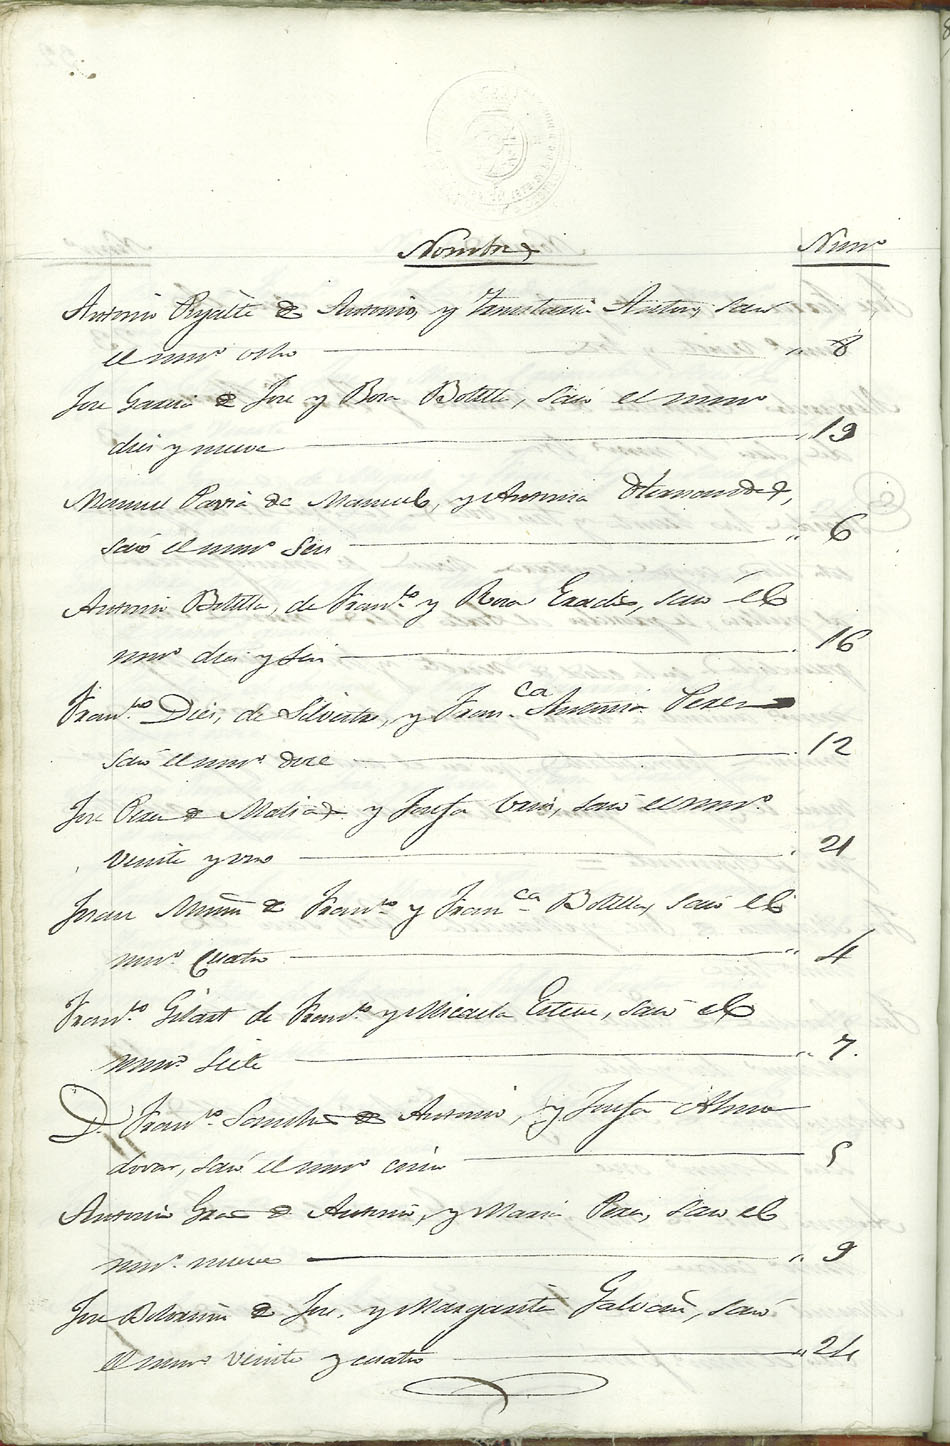 Nombres Numº
Antonio de Antonio, y Antón, sacó
el numº ocho " 8
Jose Garcia de Jose y Rosa Botella, sacó el numº
diez y nueve " 19
Manuel Pavia de Manuel, y Antonia Hernandez,
sacó el numº seis " 6
Antonio Botella, de Franco y Rosa, sacó el
numº diez y seis . 16
Franco Dies, de Silvestre, y Franca Antonia Perez
sacó el numº doce . 12
Jose Perez de Matias y Josefa, sacó el numº
veinte y uno . 21
Juan de Franco y Franca Botella, sacó el
numº Cuatro " 4
Franco Gilart de Franco y Micaela Esteve, sacó el
numº siete " 7.
D. Franco Sanchez de Antonio, y Josefa Almo
dovar, sacó el numº cinco 5
Antonio de Antonio, y Maria Perez, sacó el
numº nueve " 9
Jose de Jose, y Margarita Galvañ, sacó
el numº veinte y cuatro " 24